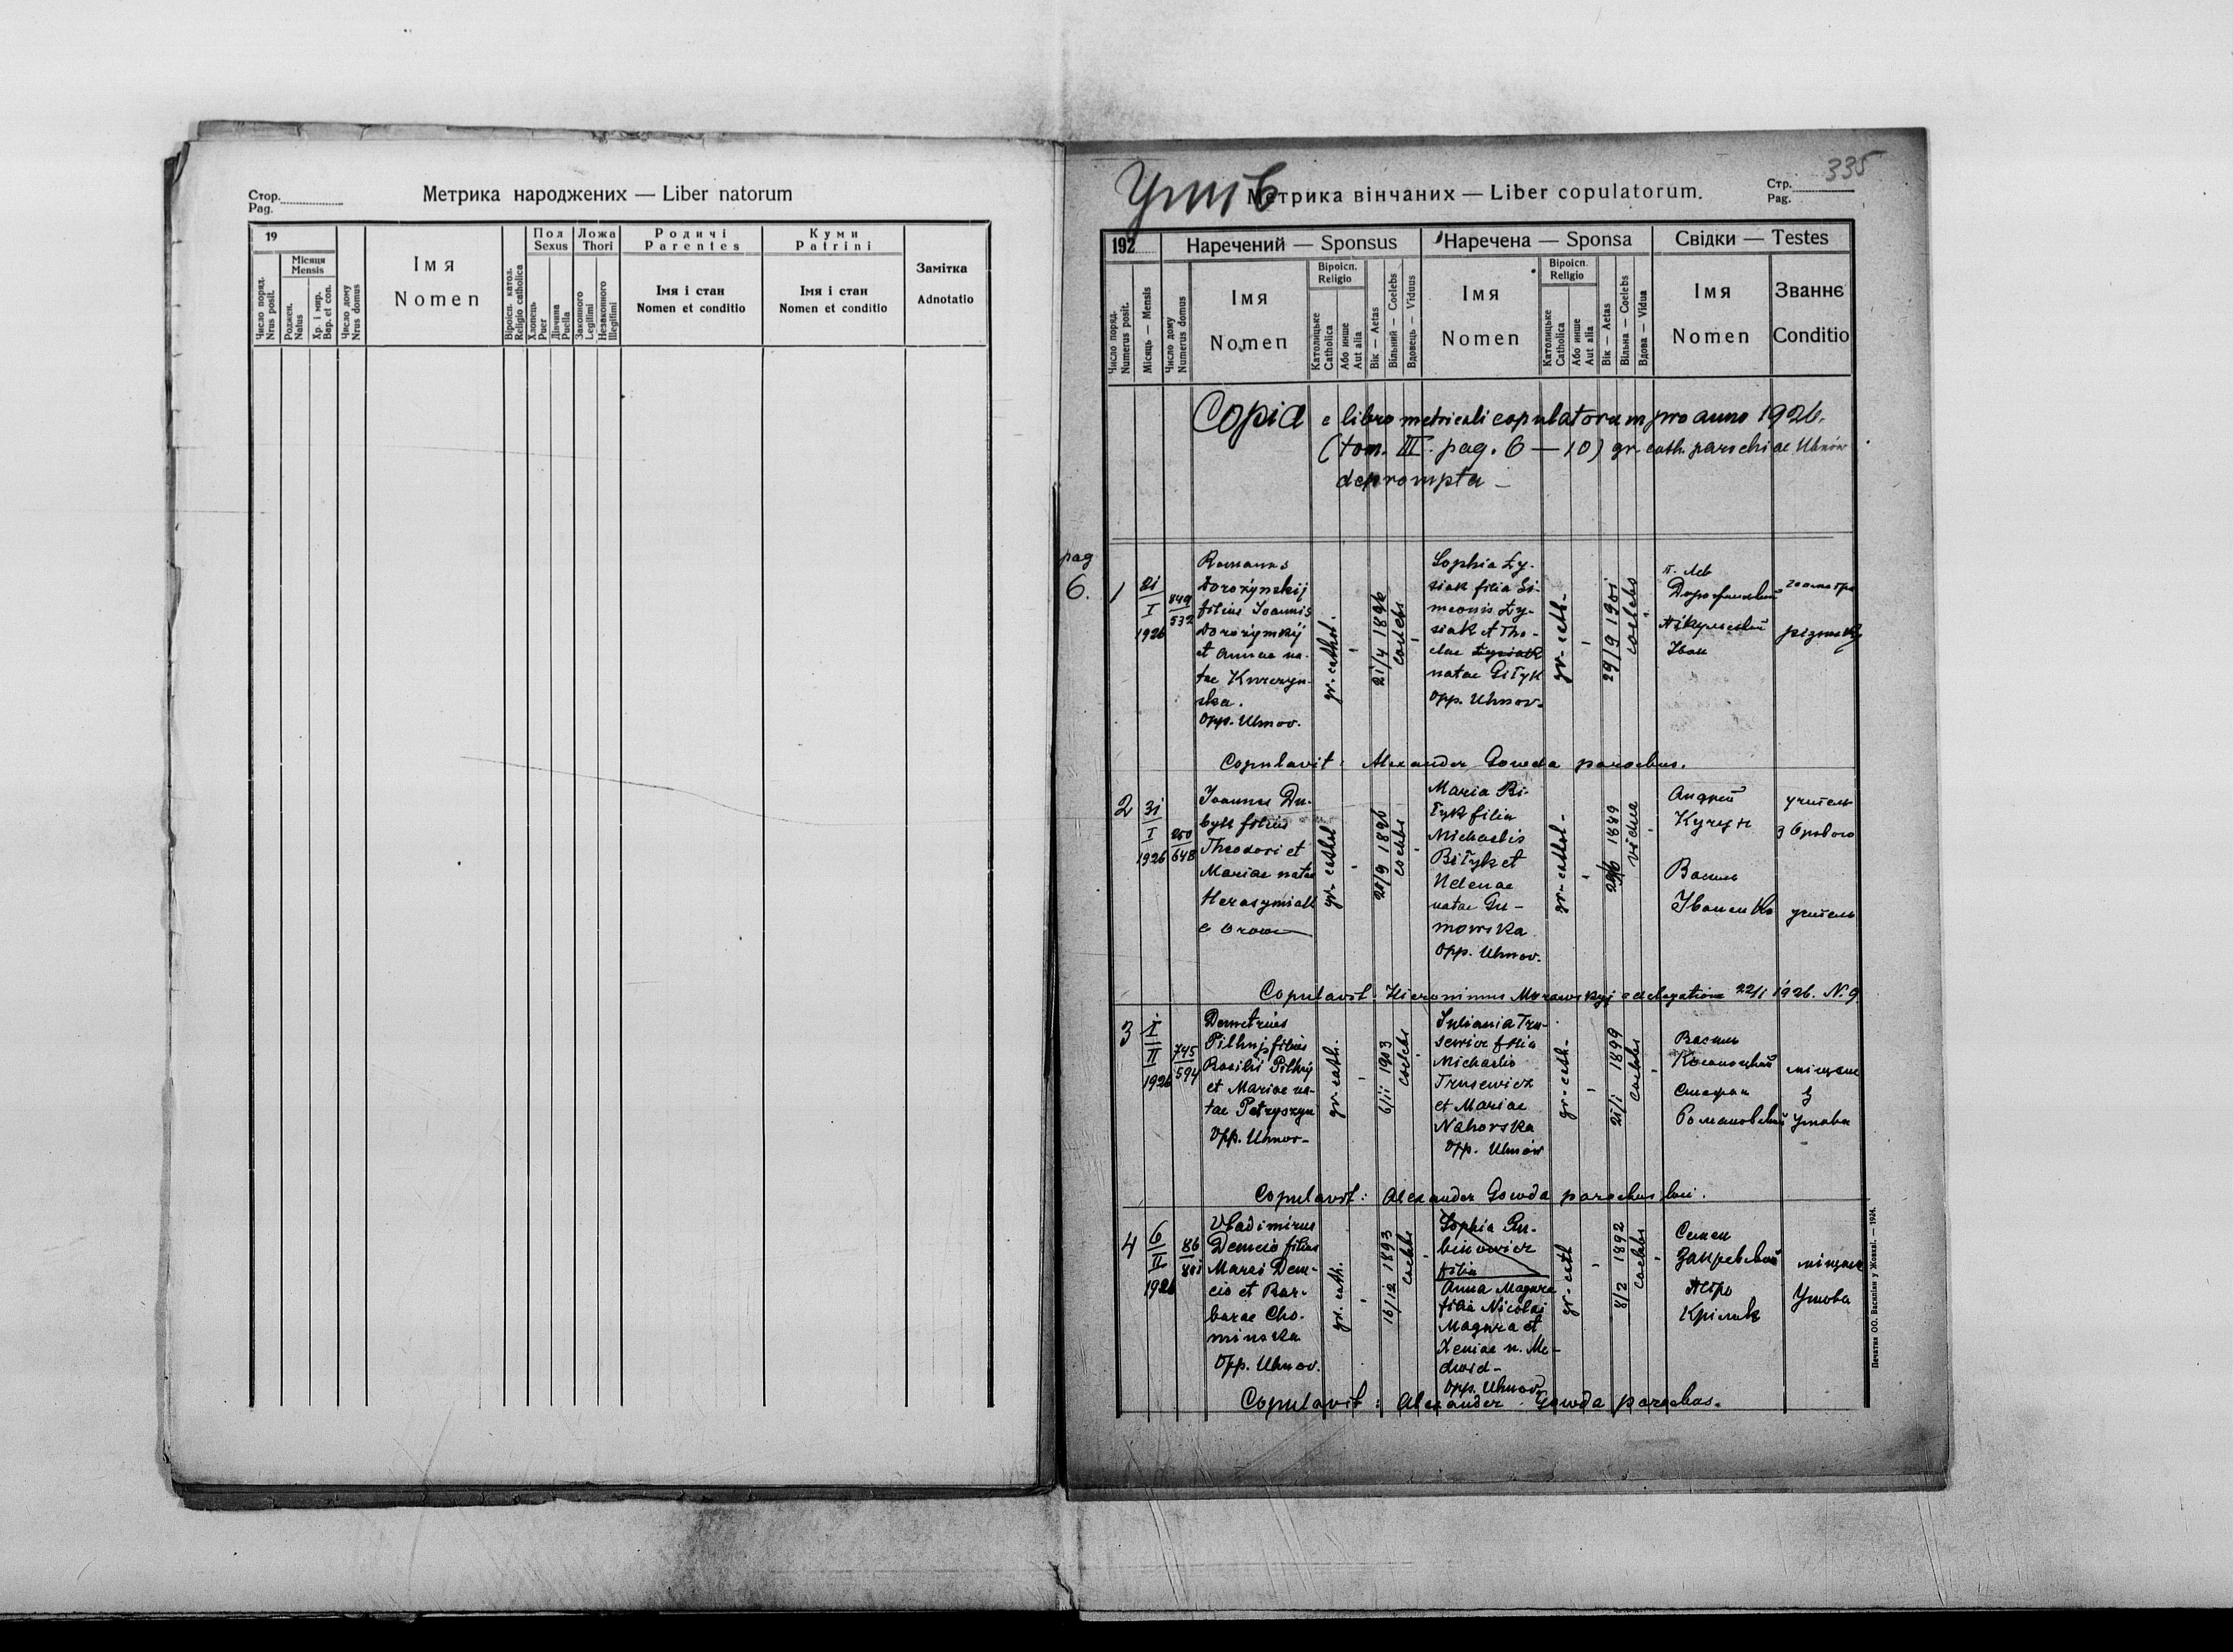 Стор.
Pag.
Метрика народжених — Liber natorum
19
Число поряд.
Nrus posit.
Місяця
Mensis
Роджен.
Natus
Хр. і мир.
Bap. et con.
Число дому
Nrus domus
Імя
Nomen
Віроісп. катол.
Religio catholica
Пол
Sexus
Хлопець
Puer
Дівчина
Puella
Ложа
Thori
Законного
Legitimi
Незаконного
Illegitimi
Родичі
Parentes
Імя і стан
Nomen et conditio
Куми
Patrini
Імя і стан
Nomen et conditio
Замітка
Adnotatio
335
Угнів
Метрика вінчаних — Liber copulatorum.
Стр.
Pag.
192
Наречений — Sponsus
Наречена — Sponsa
Свідки — Testes
Число поряд.
Numerus posit.
Місяць — Mensis
Число дому
Numerus domus
Імя
Nomen
Віроісп.
Religio
Католицьке
Catholica
Або инше
Aut alia
Вік — Aetas
Вільний — Coelebs
Вдовець — Viduus
Імя
Nomen
Віроісп.
Religio
Католицьке
Catholica
Або инше
Aut alia
Вік — Aetas
Вільна — Coelebs
Вдова — Vidua
Імя
Nomen
Званнє
Conditio
Copia e libro metricali copulatorum pro anno 1926.
(tom. III. pag. 6 — 10) gr. cath. parochiae Uhnów
deprompta —
pag
6.
1
21
I
1926
849
532
Romanus
Dorożynskij
filius Joannis
Dorożynskij
et Annae na-
tae
opp. Uhnov.
gr. cathol.
21/4 1896
coelebs
Sophia Ły-
siak filia Si-
meonis Ły-
siak et The-
clae Łysiak
natae Giłyk
opp. Uhnov.
gr. cath.
29/9 1901
coelebs
п. Лев
Дорожинський
геометра
Нікульский
Іван
різник
Copulavit: Alexander Gowda parochus.
2
31
I
1926
250
648
Joannes Du-
byk filius
Theodori et
Mariae natae
Herasymiak
gr. cathol
20/9 1896
coelebs
Maria Bi-
łyk filia
Michaelis
Biłyk et
Helenae
natae Gu-
mowska
opp. Uhnov.
gr. cathol.
1889
vidua
Андрей
Кучун
учитель
Василь
Іваненко
учитель
Copulavit: Hieronimus Murawskyj e delegatione 22/I 1926. N. 9
3
1
II
1926
745
594
Demetrius
Pilhuj filius
Basilii Pilhuj
et Mariae na-
tae Petryszyn
opp. Uhnov.
gr. cath.
6/11 1903
coelebs
Juliania Tru-
sewicz filia
Michaelis
Trusewicz
et Mariae
Nahorska
opp. Uhnów
gr. cath.
21/1 1899
coelebs
Василь
міщане
Стефан
з
Романовский
Угнова
Copulavit: Alexander Gowda parochus loci.
4
6
II
1926
86
801
Vladimirus
Demcio filius
Marci Dem-
cio et Bar-
barae Cho-
minska
opp. Uhnov.
gr. cath.
16/12 1893
coelebs
Sophia Ru-
binowicz
filia
Anna Magura
filia Nicolai
Magura et
Xeniae n. Me-
dwid-
opp. Uhnov
gr. cath
8/2 1892
coelebs
Семен
Закревский
міщане
Петро
Крілик
Угнова
Copulavit: Alexander Gowda parochus.
Печатня ОО. Василіян у Жовкві. — 1924.